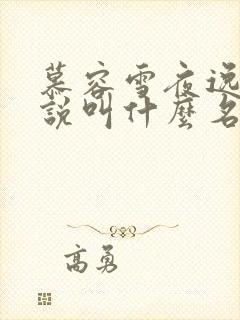 慕容雪夜逸
說叫什麼名
高勇